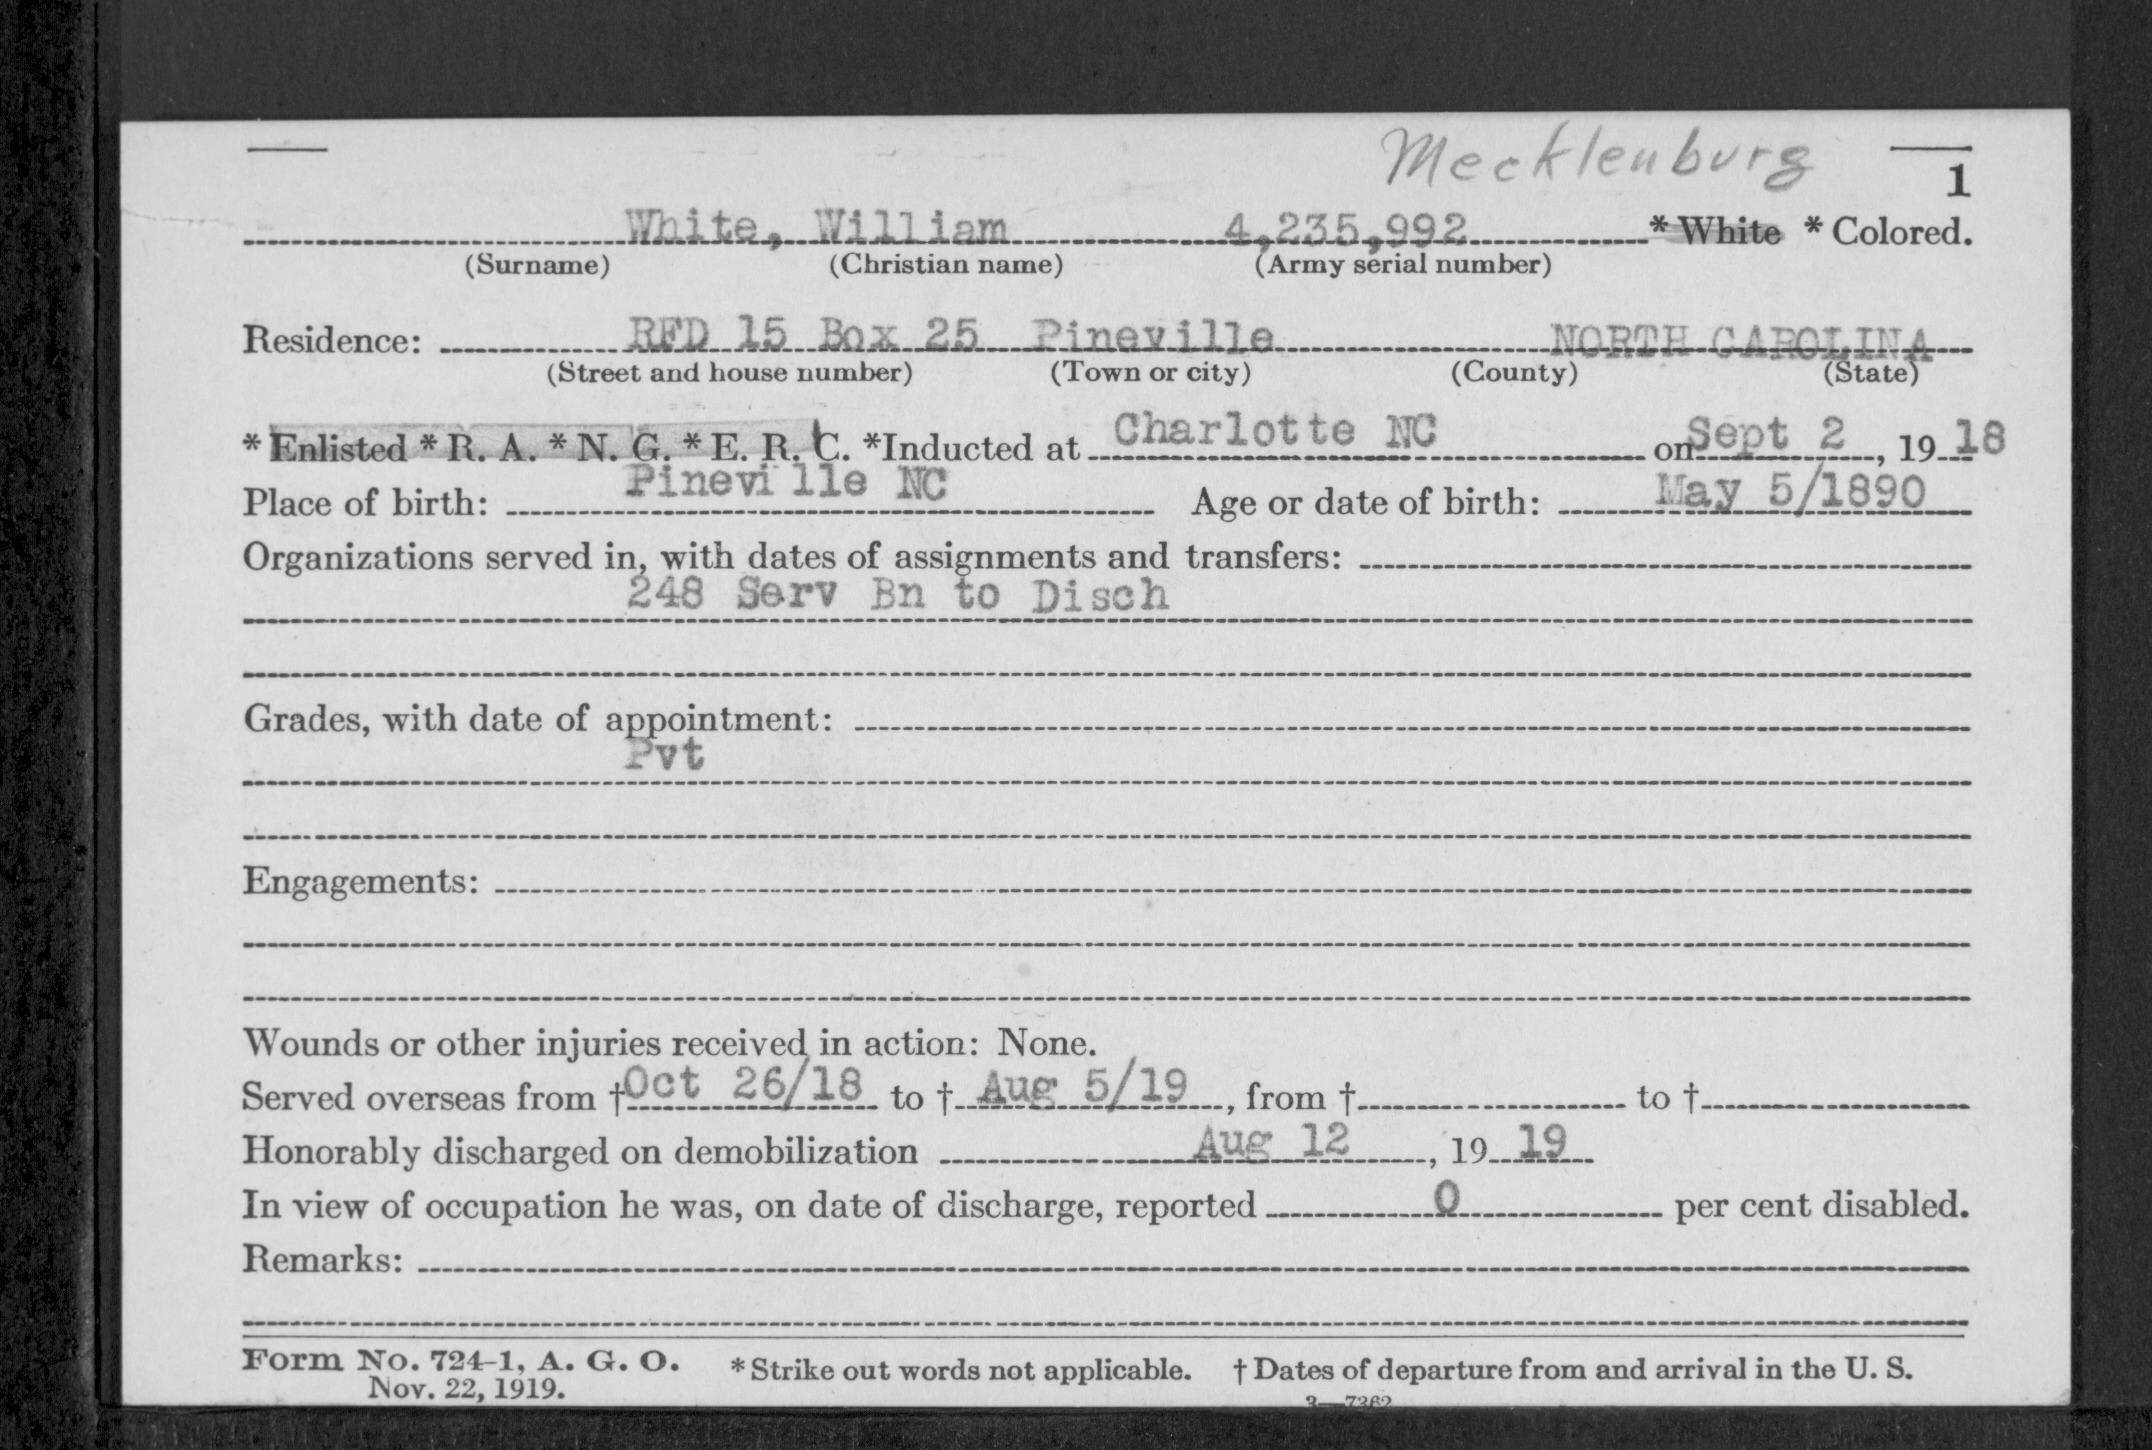 Mecklenburg
1
White, William 4,235,992 * White * Colored.
(Surname) (Christian name) (Army serial number)
Residence: RFD 15 Box 25 Pineville NORTH CAROLINA
(Street and house number) (Town or city) (County) (State)
* Enlisted * R. A. * N. G. * E. R. C. *Inducted at Charlotte NC on Sept 2, 19 18
Place of birth: Pineville NC Age or date of birth: May 5/1890
Organizations served in, with dates of assignments and transfers:
248 Serv Bn to Disch
Grades, with date of appointment:
Pvt
Engagements:
Wounds or other injuries received in action: None.
Served overseas from † Oct 26/18 to † Aug 5/19, from † to †
Honorably discharged on demobilization Aug 12, 19 19
In view of occupation he was, on date of discharge, reported 0 per cent disabled.
Remarks:
Form No. 724-1, A. G. O. * Strike out words not applicable. † Dates of departure from and arrival in the U. S.
Nov. 22, 1919.
3—7362